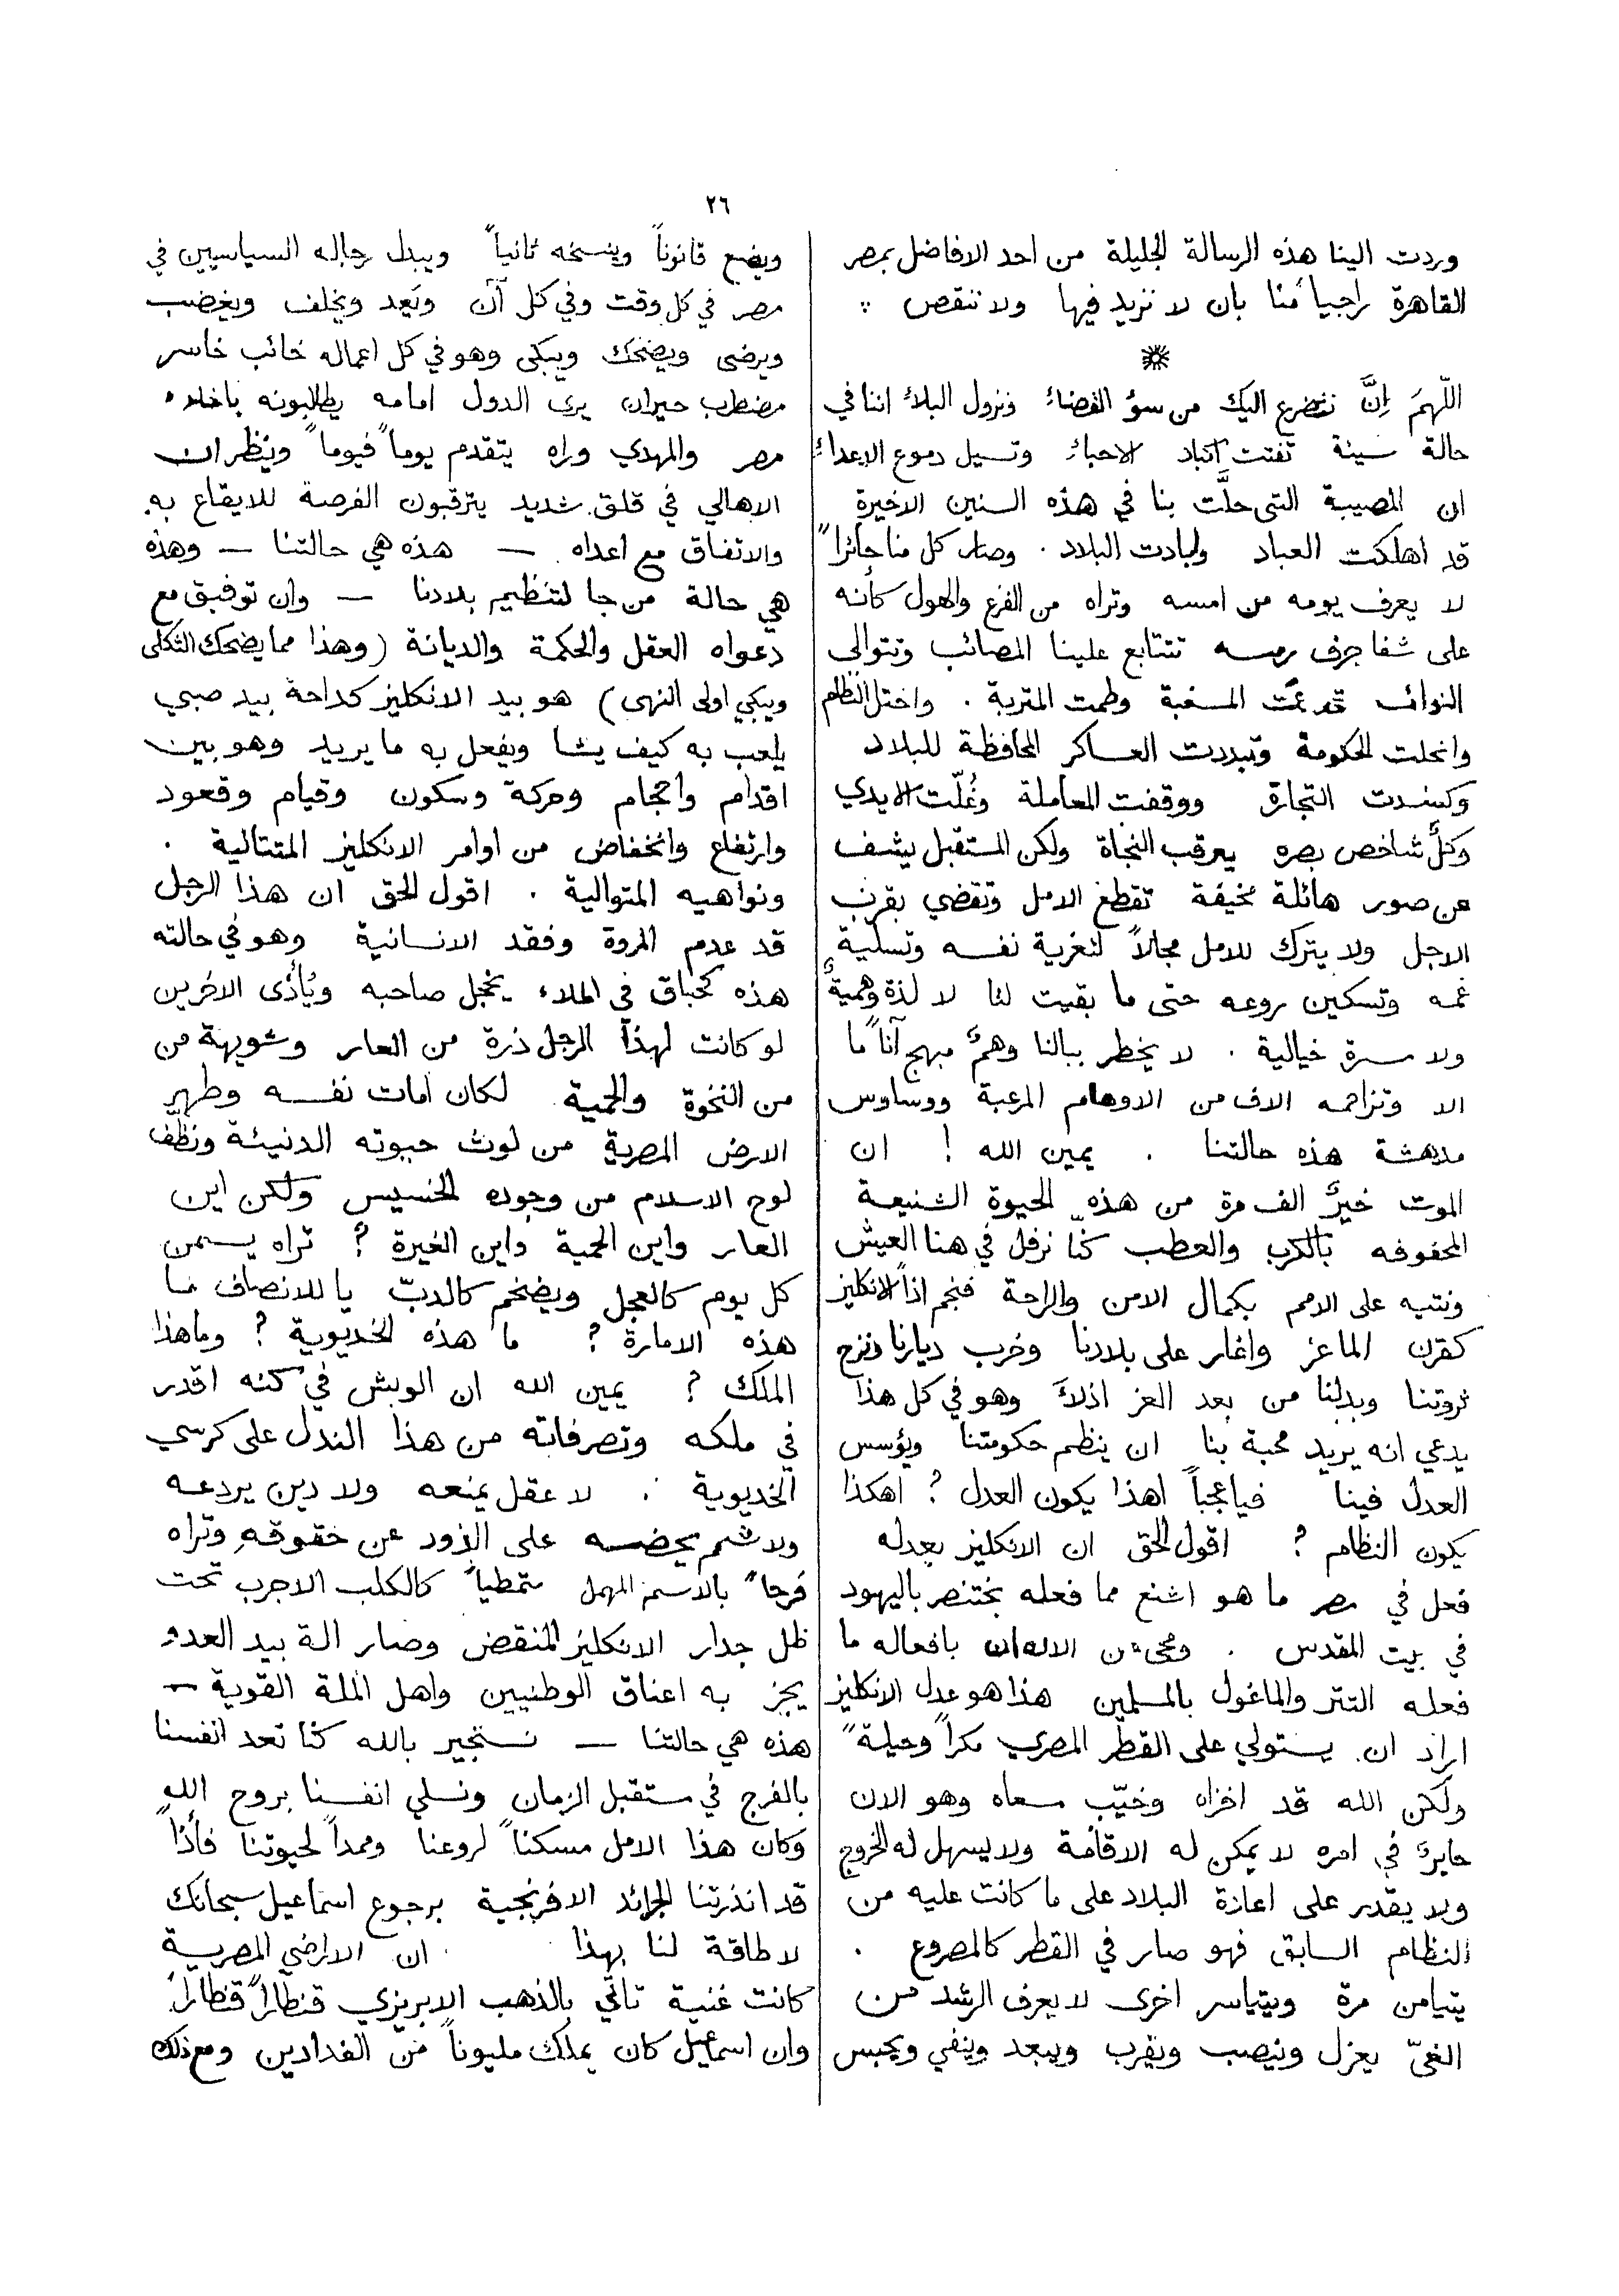 ٢٦
وردت الينا هذه الرسالة الجليلة من احد الافاضل بمصر
القاهرة راجياً منا بان لا نزيد فيها ولا ننقص
اللّهمَ اِنَّ نتضرع اليك من سوُ القضاء ونزول البلاء اننا في
حالة سيئة تفتت اكباد الاحباء وتسيل دموع الاعداء
ان المصيبة التى حلَّت بنا في هذه السنين الاخيرة
قد اهلكت العباد وابادت البلاد . وصار كل منا حائراً
لا يعرف يومه من امسه وتراه من الفزع والهول كأنه
على شفا جرف رمسه تتتابع علينا المصائب وتتوالى
النوائب قد عمّت المسغبة وطمت المتربة . واختل النظام
وانحلت الحكومة وتبددت العساكر المحافظة للبلاد
وكسدت التجارة ووقفت المعاملة وغُلّت الايدي
وكلٌ شاخص بصره يترقب النجاة ولكن المستقبل يشف
عن صور هائلة مخيفة تقطع الامل وتقضي بقرب
الاجل ولا يترك للامل مجالاً لتعزية نفسه وتسلية
غمه وتسكين روعه حتى ما بقيت لنا لا لذة وهميةٌ
ولا مسرة خيالية . لا يخطر ببالنا وهمٌ مبهج آناً ما
الا وتزاحمه الاف من الاوهام المرعبة ووساوس
مدهشة هذه حالتنا . يمين الله ! ان
الموت خيرٌ الف مرة من هذه الحيوة الشنيعة
المحفوفه بالكرب والعطب كنّا نرفل في هنا العيش
ونتيه على الامم بكمال الامن والراحة فنجم اذاً الانكليز
كقرن الماعز واغار على بلادنا وخرب ديارنا ونزح
ثروتنا وبدلنا من بعد العز اذلاَ وهو في كل هذا
يدعي انه يريد محبة بنا ان ينظم حكومتنا ويؤسس
العدل فينا فيا عجباً اهذا يكون العدل ؟ اهكذا
يكون النظام ؟ اقول الحق ان الانكليز بعدله
فعل في مصر ما هو اشنع مما فعله بختنصر باليهود
في بيت المقدس . الان بافعاله ما
فعله التتر والماغول بالمسلمين هذا هو عدل الانكليز
اراد ان يستولي على القطر المصري مكراً وحيلةً
ولكن الله قد اخزاه وخيّب مسعاه وهو الان
حايرٌ في امره لا يمكن له الاقامة ولا يسهل له الخروج
ولا يقدر على اعادة البلاد على ما كانت عليه من
النظام السابق فهو صار في القطر كالمصروع .
يتيامن مرة ويتياسر اخرى لا يعرف الرشد من
الغىّ يعزل وينصب ويقرب ويبعد وينفي ويحبس
ويضع قانوناً وينسخه ثانياً ويبدل رجاله السياسيين في
مصر في كل وقت وفي كل آن ويَعد ويخلف ويغضب
ويرضى ويضحك ويبكى وهو في كل اعماله خائب خاسر
مضطرب حيران يرى الدول امامه يطالبونه باخلاء
مصر والمهدي وراه يتقدم يوماً فيوماً وينظر ان
الاهالي في قلق شديد يترقبون الفرصة للايقاع به
والاتفاق مع اعداه — هذه هي حالتنا — وهذه
هي حالة من جا لتنظيم بلادنا — وان توفيق مع
دعواه العقل والحكمة والديانة (وهذا مما يضحك الثكلى
ويبكي اولى النهى) هو بيد الانكليز كداحة بيد صبي
يلعب به كيف يشا ويفعل به ما يريد وهو بين
اقدام واحجام وحركة وسكون وقيام وقعود
وارتفاع وانخفاض من اوامر الانكليز المتتالية .
ونواهيه المتوالية . اقول الحق ان هذا الرجل
قد عدم المروة وفقد الانسانية وهو في حالته
هذه كحباق في الملاء يخجل صاحبه ويُأذى الاخرين
لو كانت لهذا الرجل ذرة من العار وشويهة من
من النخوة والحمية لكان امات نفسه وطهر
الارض المصرية من لوث حيوته الدنيئة ونظف
لوح الاسلام من وجوده الخسيس ولكن اين
العار واين الحمية واين الغيرة ؟ تراه يسمن
كل يوم كالعجل ويضخم كالدبّ يا للانصاف ما
هذه الامارة ؟ ما هذه الخديوية ؟ وما هذا
الملك ؟ يمين الله ان الوبش في كنه اقدر
في ملكه وتصرفاته من هذا الندل على كرسي
الخديوية . لا عقل يمنعه ولا دين يردعه
ولا شمم يحضه على الذود عن حقوقه وتراه
فرحاً بالاسم المهمل متمطياً كالكلب الاجرب تحت
ظل جدار الانكليز المنقض وصار الة بيد العدو
يجز به اعناق الوطنيين واهل الملة القوية —
هذه هي حالتنا — نستجير بالله كنا نعد انفسنا
بالفرج في مستقبل الزمان ونسلي انفسنا بروح الله
وكان هذا الامل مسكناً لروعنا وممداً لحيوتنا فأذاً
قد انذرتنا الجرائد الافرنجية برجوع اسماعيل سبحانك
لا طاقة لنا بهذا . ان الاراضي المصرية
كانت غنية تاتي بالذهب الابريزي قنطاراً قنطاراً
وان اسمعيل كان يملك مليوناً من الفدادين ومع ذلك